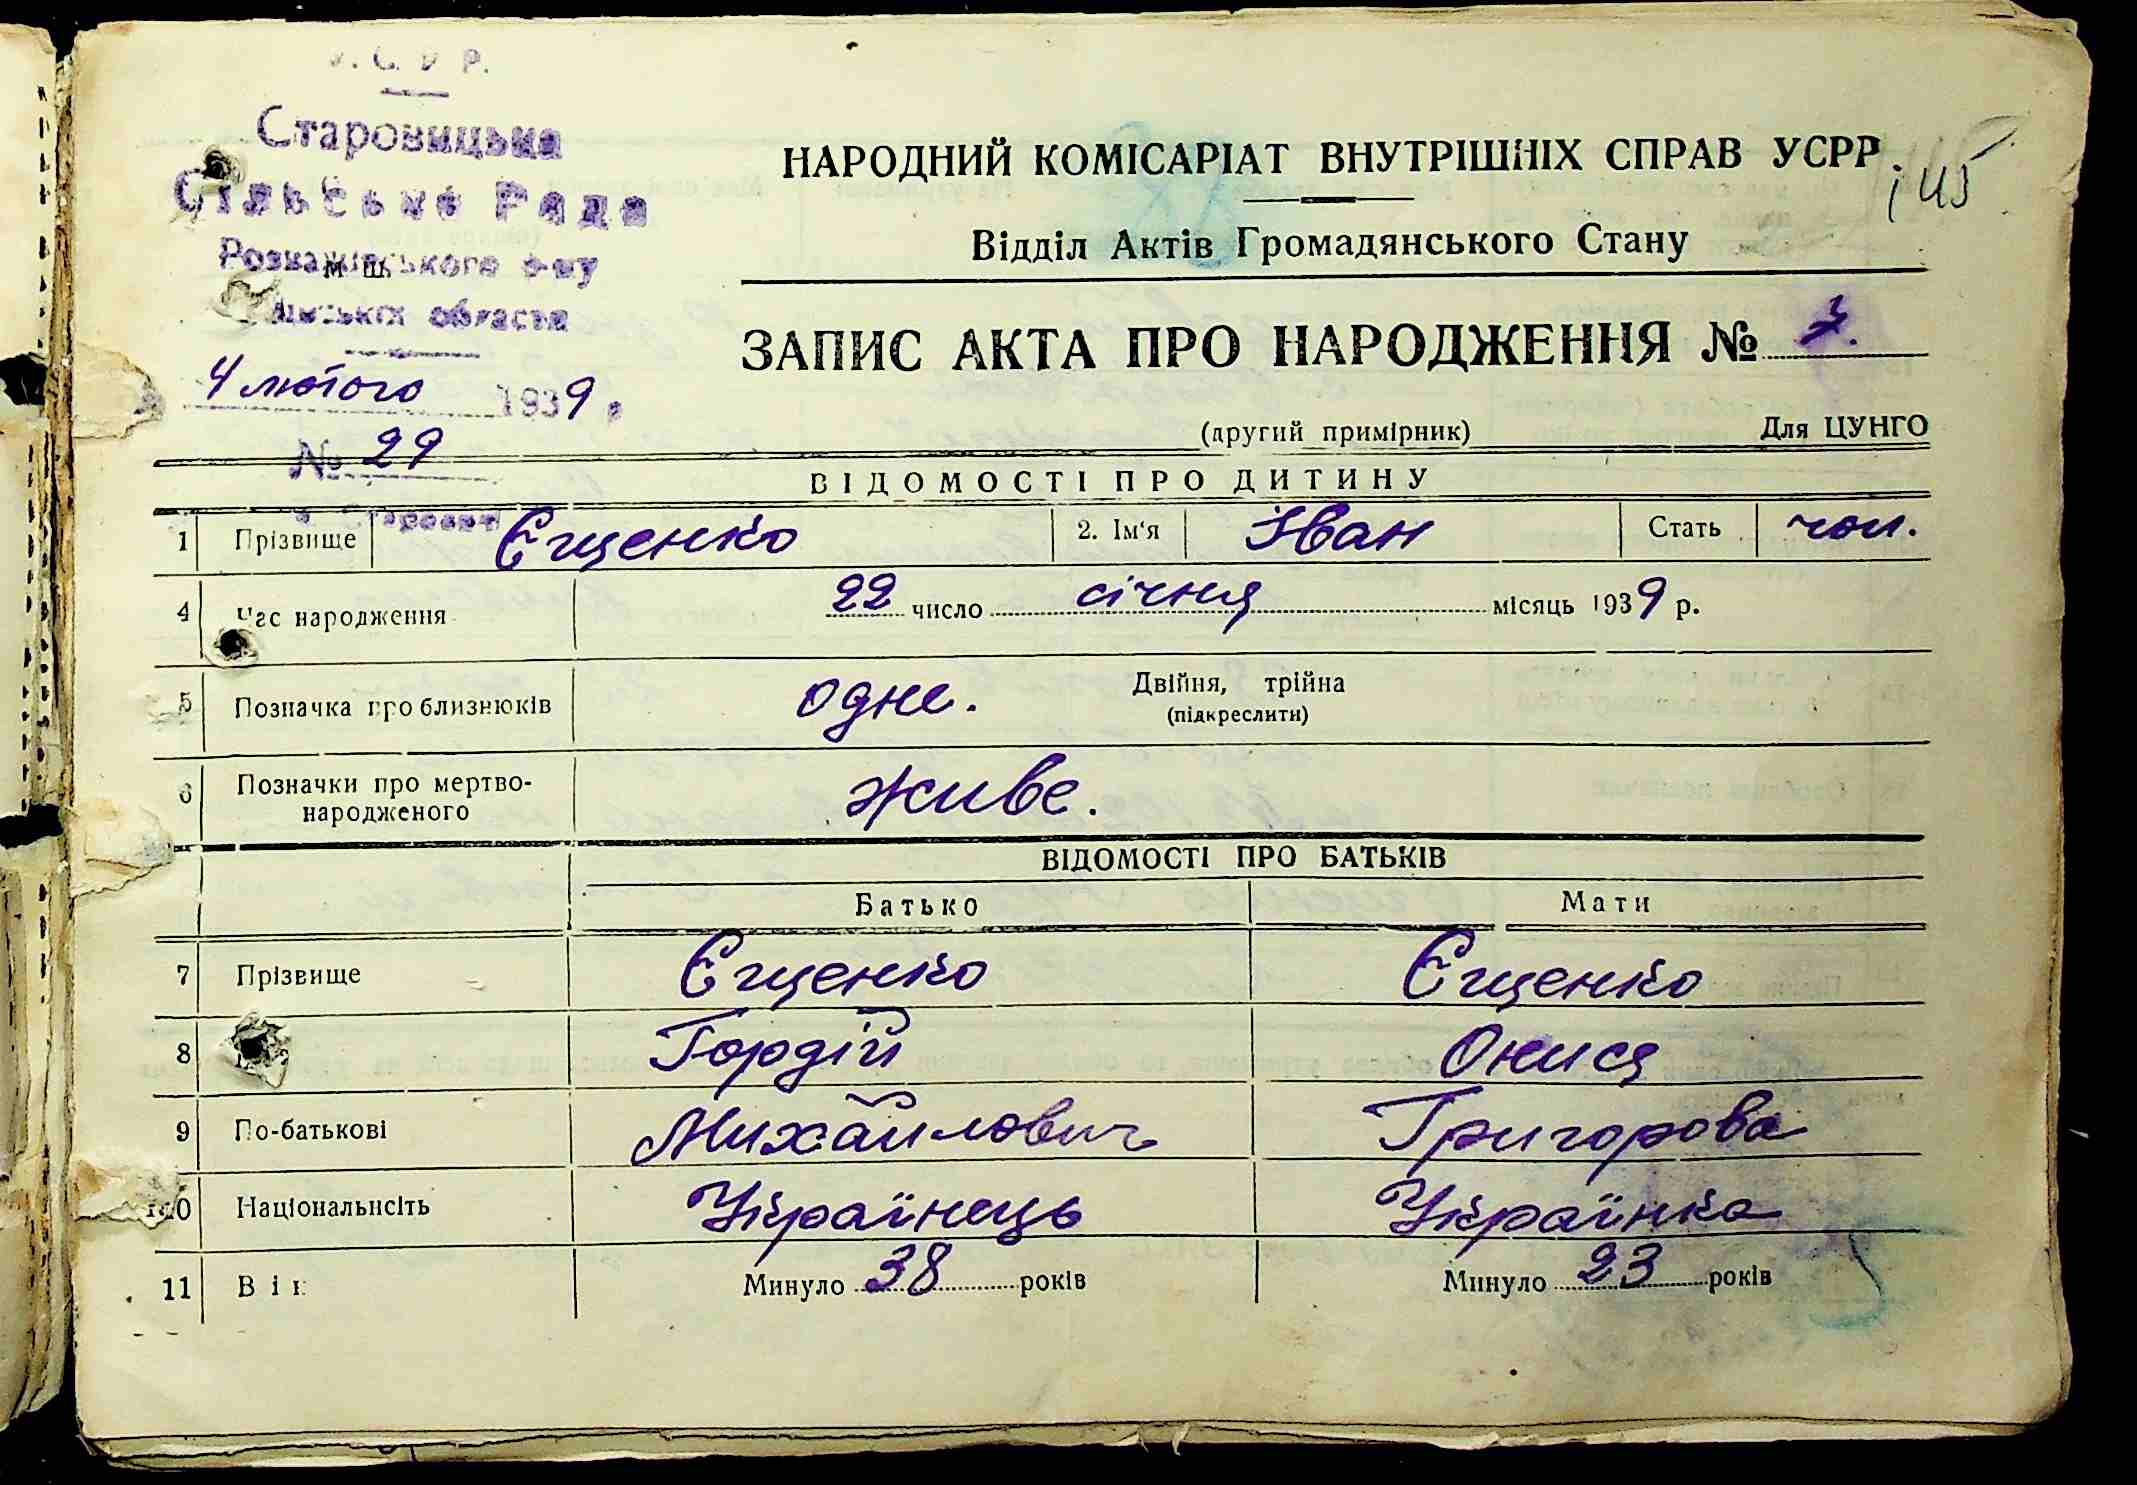 Старовицька
Сільська Рада
Розважівського р-ну
області
4 лютого 1939 р.
№ 29
НАРОДНИЙ КОМІСАРІАТ ВНУТРІШНІХ СПРАВ УСРР.
145
Відділ Актів Громадянського Стану
ЗАПИС АКТА ПРО НАРОДЖЕННЯ № 7.
(другий примірник) Для ЦУНГО
ВІДОМОСТІ ПРО ДИТИНУ
1 Прізвище Єщенко 2. Ім'я Іван Стать чол.
4 Час народження 22 число січня місяць 1939 р.
5 Позначка про близнюків одне. Двійня, трійна
(підкреслити)
6 Позначки про мертво-
народженого живе.
ВІДОМОСТІ ПРО БАТЬКІВ
Батько Мати
7 Прізвище Єщенко Єщенко
8 Гордій Онися
9 По-батькові Михайлович Григорова
10 Національнсіть Українець Українка
11 Вік Минуло 38 років Минуло 23 років